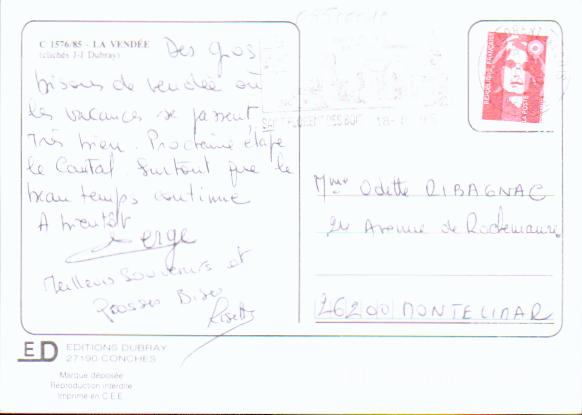 C 1576/85 - LA VENDÉE
(clichés J-J Dubray)
Des gros
bisous de vendée où
les vacances se passent
très bien. Prochaine étape
le Cantal. Surtout que le
beau temps continue
A bientôt
Serge
Meilleurs Souvenirs et
Grosses Bises
REPUBLIQUE FRANÇAISE
LA POSTE
SAINT FLORENT DES BOIS 18-
Mme Odette RIBAGNAC
Avenue de Rochemaure
26200 MONTELIMAR
ED EDITIONS DUBRAY
27190 CONCHES
Marque déposée
Reproduction interdite
Imprimé en C.E.E.